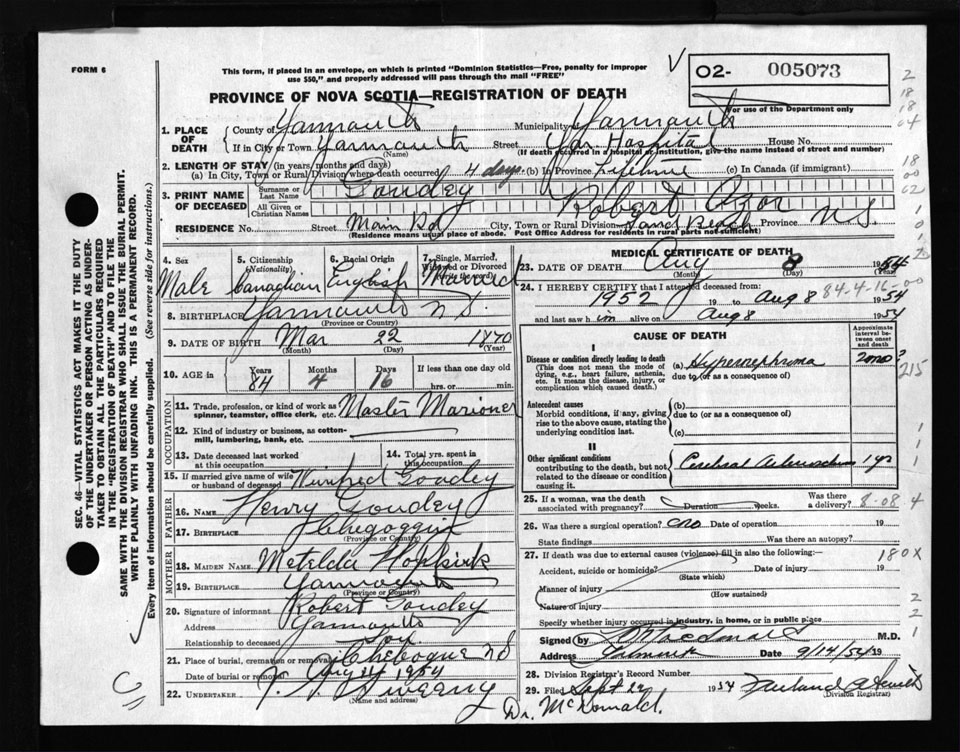 FORM 6
This form, if placed in an envelope, on which is printed "Dominion Statistics—Free, penalty for improper
use $50," and properly addressed will pass through the mail "FREE"
O2- 005073
For use of the Department only
PROVINCE OF NOVA SCOTIA—REGISTRATION OF DEATH
1. PLACE OF DEATH
County of Yarmouth Municipality Yarmouth
If in City or Town Yarmouth Street Yar. Hospital House No.
(Name) (If death occurred in a hospital or institution, give the name instead of street and number)
2. LENGTH OF STAY (in years, months and days)
(a) In City, Town or Rural Division where death occurred 4 days (b) In Province Lifetime (c) In Canada (if immigrant)
3. PRINT NAME OF DECEASED
Surname or Last Name Goudey
All Given or Christian Names Robert Azor
RESIDENCE No. Street Main Rd City, Town or Rural Division Sand Beach Province N.S.
(Residence means usual place of abode. Post Office Address for residents in rural parts not sufficient)
4. Sex Male
5. Citizenship (Nationality) Canadian
6. Racial Origin English
7. Single, Married, Widowed or Divorced (Write the word) Married
8. BIRTHPLACE Yarmouth N.S.
(Province or Country)
9. DATE OF BIRTH Mar 22 1870
(Month) (Day) (Year)
10. AGE in Years 84 Months 4 Days 16 If less than one day old
hrs. or min.
OCCUPATION
11. Trade, profession, or kind of work as spinner, teamster, office clerk, etc. Master Marioner
12. Kind of industry or business, as cotton-mill, lumbering, bank, etc.
13. Date deceased last worked at this occupation
14. Total yrs. spent in this occupation
15. If married give name of wife or husband of deceased Winifred Goudey
FATHER
16. Name Henry Goudey
17. Birthplace Chegoggin
(Province or Country)
MOTHER
18. Maiden Name Metelda Hopkirk
19. Birthplace Yarmouth
(Province or Country)
20. Signature of informant Robert Goudey
Address Yarmouth
Relationship to deceased Son
21. Place of burial, cremation or removal Chebogue N S
Date of burial or removal Aug 11 1954
22. UNDERTAKER Sweeny
(Name and address)
MEDICAL CERTIFICATE OF DEATH
23. DATE OF DEATH Aug 8 1954
(Month) (Day) (Year)
24. I HEREBY CERTIFY that I attended deceased from:
84-4-16-00
1952 19 to Aug 8 1954
and last saw him alive on Aug 8 1954
CAUSE OF DEATH
Approximate interval between onset and death
I
Disease or condition directly leading to death
(This does not mean the mode of dying, e.g., heart failure, asthenia, etc. It means the disease, injury, or complication which caused death.)
(a) Hypernephroma 2 mo?
due to (or as a consequence of)
Antecedent causes
Morbid conditions, if any, giving rise to the above cause, stating the underlying condition last.
(b)
due to (or as a consequence of)
(c)
II
Other significant conditions
contributing to the death, but not related to the disease or condition causing it.
Cerebral 1 yr
25. If a woman, was the death associated with pregnancy? Duration weeks. Was there a delivery? 8-08 4
26. Was there a surgical operation? no Date of operation 19
State findings Was there an autopsy?
27. If death was due to external causes (violence) fill in also the following:—
180X
Accident, suicide or homicide? Date of injury 19
(State which)
Manner of injury
(How sustained)
Nature of injury
Specify whether injury occurred in industry, in home, or in public place
Signed by Macdonald M.D.
Address Date 9/14/54 19
28. Division Registrar's Record Number
29. Filed Sept 1954
(Division Registrar)
Dr. McDonald.
SEC. 46—VITAL STATISTICS ACT MAKES IT THE DUTY
OF THE UNDERTAKER OR PERSON ACTING AS UNDER-
TAKER TO OBTAIN ALL THE PARTICULARS REQUIRED
IN THE "REGISTRATION OF DEATH" AND TO FILE THE
SAME WITH THE DIVISION REGISTRAR WHO SHALL ISSUE THE BURIAL PERMIT.
WRITE PLAINLY WITH UNFADING INK. THIS IS A PERMANENT RECORD.
Every item of information should be carefully supplied. (See reverse side for instructions.)
2
18
18
04
18
00
02
1
0
1
215
1
1
1
2
2
1